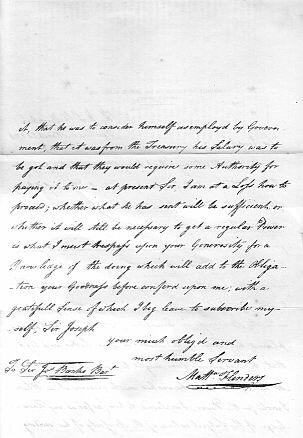 it, that he was to consider himself as employd by Govern-
ment, that it was from the Treasury his Salary was to
be got and that they would require some Authority for
paying it to me – at present Sir I am at a Loss how to
proceed; whether what he has sent will be sufficient, or
whether it will still be necessary to get a regular Power
is what I must trespass upon your Generosity for a
Knowledge of the doing which will add to the Obliga-
tion your Goodness before conferd upon me, with a
gratefull Sense of which I beg leave to subscribe my-
self, Sir Joseph
your much oblig'd and
most humble Servant
Matt.w Flinders
To Sir Jos Banks Bart